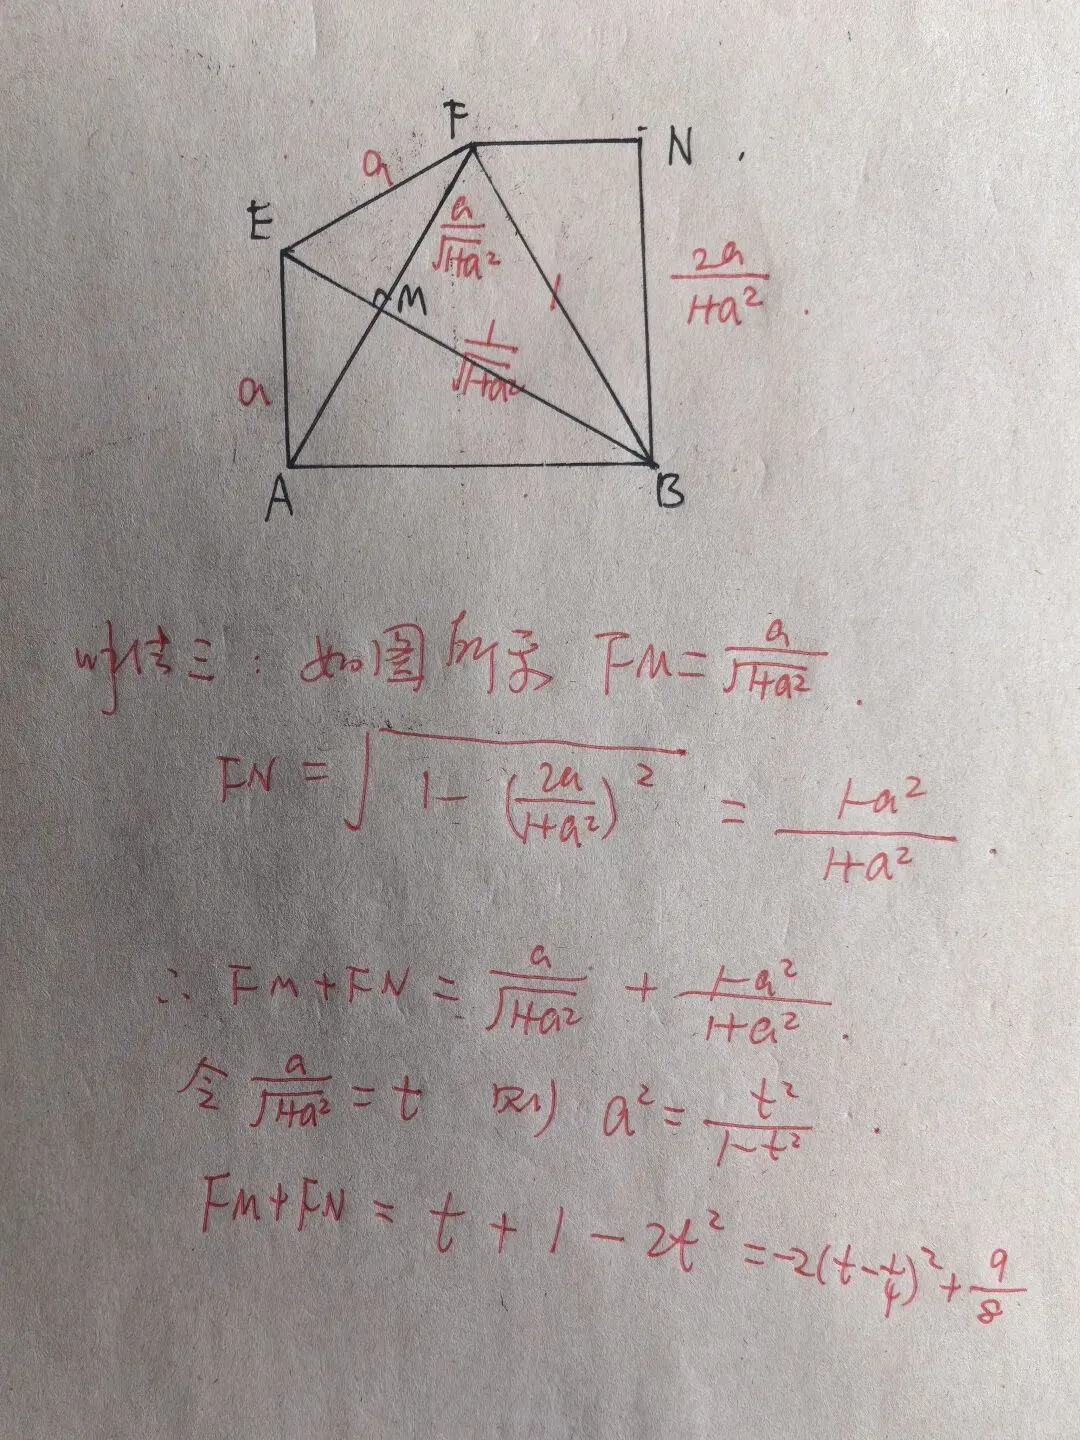 F
N .
a
E
a/√(1+a²)
M
1
2a/(1+a²) .
1/√(1+a²)
a
A
B
法三: 如图所示 FM = a/√(1+a²) .
FN = √(1-(2a/(1+a²))²) = (1-a²)/(1+a²) .
∴ FM+FN = a/√(1+a²) + (1-a²)/(1+a²) .
令 a/√(1+a²) = t 则 a² = t²/(1-t²) .
FM+FN = t + 1 - 2t² = -2(t-1/4)² + 9/8